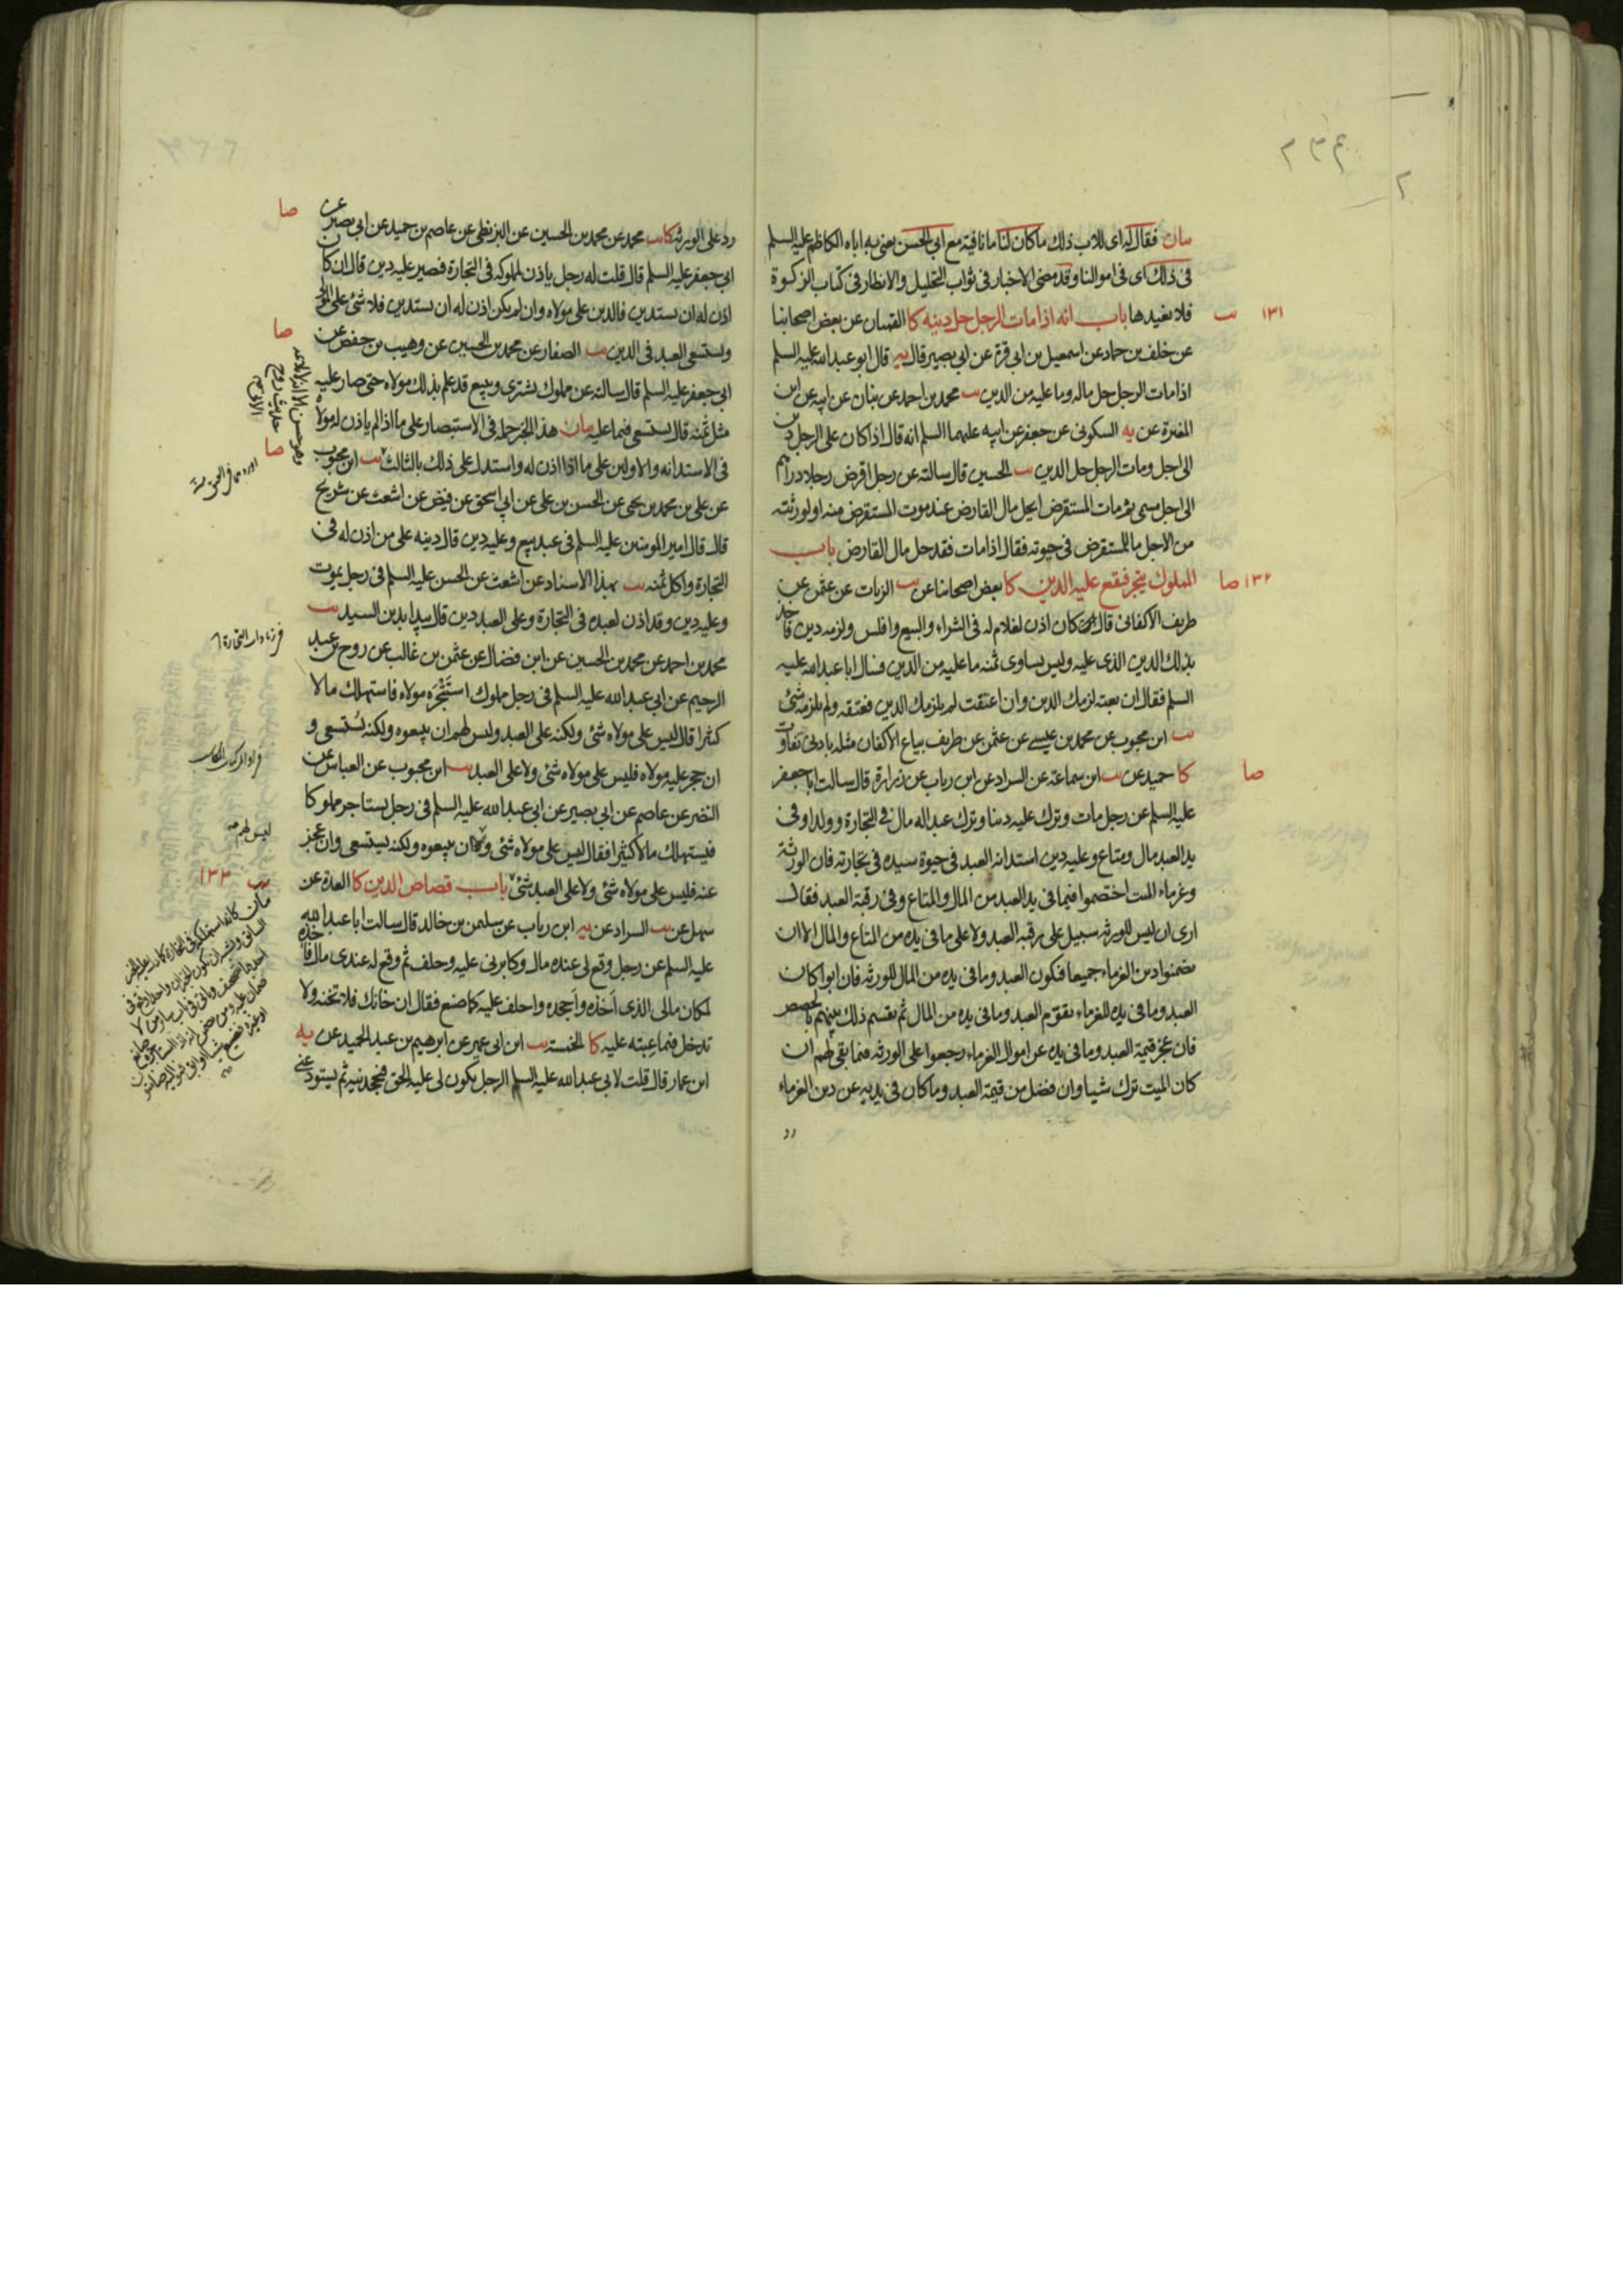 بيان فقال له اى للاب ذلك ما كان لنا مانافيته مع ابى الحسن يعنى به اباه الكاظم عليه السلم
فى ذلك اى فى اموالنا وقد مضى الاخبار فى ثواب التحليل والانظار فى كتاب الزكوة
١٣١ يب فلا نعيدها باب انه اذا مات الرجل حل دينه كا القميان عن بعض اصحابنا
عن خلف بن حماد عن اسمعيل بن ابى قرة عن ابى بصير قال يه قال ابو عبد الله عليه السلم
اذا مات الرجل حل ماله وما عليه من الدين يب محمد بن احمد عن بنان عن ابيه عن ابن
المغيرة عن يه السكونى عن جعفر عن ابيه عليهما السلم انه قال اذا كان على الرجل دين
الى اجل ومات الرجل حل الدين يب الحسين قال سالته عن رجل اقرض رجلا دراهم
الى اجل مسمى ثم مات المستقرض ايحل مال القارض عند موت المستقرض منه او لورثته
من الاجل ما للمستقرض فى حيوته فقال اذا مات فقد حل مال القارض باب
١٣٢ صا المملوك يتجر فيقع عليه الدين كا بعض اصحابنا عن يب الزيات عن عثمن عن
طريف الاكفانى قال كان اذن لغلام له فى الشراء والبيع وافلس ولزمه دين فاخذ
بذلك الدين الذى عليه وليس يساوى ثمنه ما عليه من الدين فسال ابا عبد الله عليه
السلم فقال ان بعته لزمك الدين وان اعتقت لم يلزمك الدين فعتقه ولم يلزمه شئ
يب ابن محبوب عن محمد بن عيسى عن عثمن عن طريف بياع الاكفان مثله بادنى تفاوت
صا كا حميد عن يب ابن سماعة عن السراد عن ابن رياب عن زرارة قال سالت ابا جعفر
عليه السلم عن رجل مات وترك عليه دينا وترك عبدا له مال فى التجارة وولدا وفى
يد العبد مال ومتاع وعليه دين استدانه العبد فى حيوة سيده فى تجارته فان الورثة
وغرماء الميت اختصموا فيما فى يد العبد من المال والمتاع وفى رقبة العبد فقال
ارى ان ليس للورثه سبيل على رقبه العبد ولا على ما فى يده من المتاع والمال الا ان
يضمنوا دين الغرماء جميعا فيكون العبد وما فى يده من المال للورثه فان ابوا كان
العبد وما فى يده للغرماء يقوم العبد وما فى يده من المال ثم يقسم ذلك بينهم بالحصص
فان عجز قيمة العبد وما فى يده عن اموال الغرماء رجعوا على الورثه فيما بقى لهم ان
كان الميت ترك شيا وان فضل من قيمة العبد وما كان فى يديه عن دين الغرماء
رد
رد على الورثه كا يب محمد عن محمد بن الحسين عن البزنطى عن عاصم بن حميد عن ابى بصير عن صا
ابى جعفر عليه السلم قال قلت له رجل ياذن لمملوكه فى التجارة فصير عليه دين قال ان كان
اذن له ان يستدين فالدين على مولاه وان لم يكن اذن له ان يستدين فلا شئ على المولى
ويستسعى العبد فى الدين يب الصفار عن محمد بن الحسين عن وهيب بن حفص عن صا
ابى جعفر عليه السلم قال سالته عن مملوك يشترى ويبيع قد علم بذلك مولاه حتى صار عليه
مثل ثمنه قال يستسعى فيما عليه بيان هذا الخبر حمله فى الاستبصار على ما اذا لم ياذن له مولاه
فى الاستدانه والاولين على ما اذا اذن له واستدل على ذلك بالثالث يب ابن محبوب صا
عن على بن محمد بن يحيى عن الحسن بن على عن ابى اسحق عن فيض عن اشعث عن شريح
قال قال امير المومنين عليه السلم فى عبد بيع وعليه دين قال دينه على من اذن له فى
التجارة واكل ثمنه يب بهذا الاسناد عن اشعث عن الحسن عليه السلم فى رجل يموت
وعليه دين وقد اذن لعبده فى التجارة وعلى العبد دين قال يبدا بدين السيد يب
محمد بن احمد عن محمد بن الحسين عن ابن فضال عن عثمن بن غالب عن روح بن عبد
الرحيم عن ابى عبد الله عليه السلم فى رجل مملوك استتجره مولاه فاستهلك مالا
كثيرا قال ليس على مولاه شئ ولكنه على العبد وليس لهم ان يبيعوه ولكنه يستسعى و
ان حجر عليه مولاه فليس على مولاه شئ ولا على العبد يب ابن محبوب عن العباس عن
النضر عن عاصم عن ابى بصير عن ابى عبد الله عليه السلم فى رجل يستاجر مملوكا
فيستهلك مالا كثيرا فقال ليس على مولاه شئ ان يبيعوه ولكنه يستسعى وان عجز
ليس لهم
عنه فليس على مولاه شئ ولا على العبد شئ باب قصاص الدين كا العدة عن يب ١٣٣
سهل عن يب السراد عن يه ابن رياب عن سليمن بن خالد قال سالت ابا عبد الله
عليه السلم عن رجل وقع لى عنده مال وكابرنى عليه وحلف ثم وقع له عندى مال فاخذه
لمكان مالى الذى اخذه واجحده واحلف عليه كما صنع فقال ان خانك فلا تخنه ولا
تدخل فيما عبته عليه كا الخمسة يب ابن ابى عمير عن ابرهيم بن عبد الحميد عن يه
ابن عمار قال قلت لابى عبد الله عليه السلم الرجل يكون لى عليه الحق فيجحدنيه ثم يستودعنى